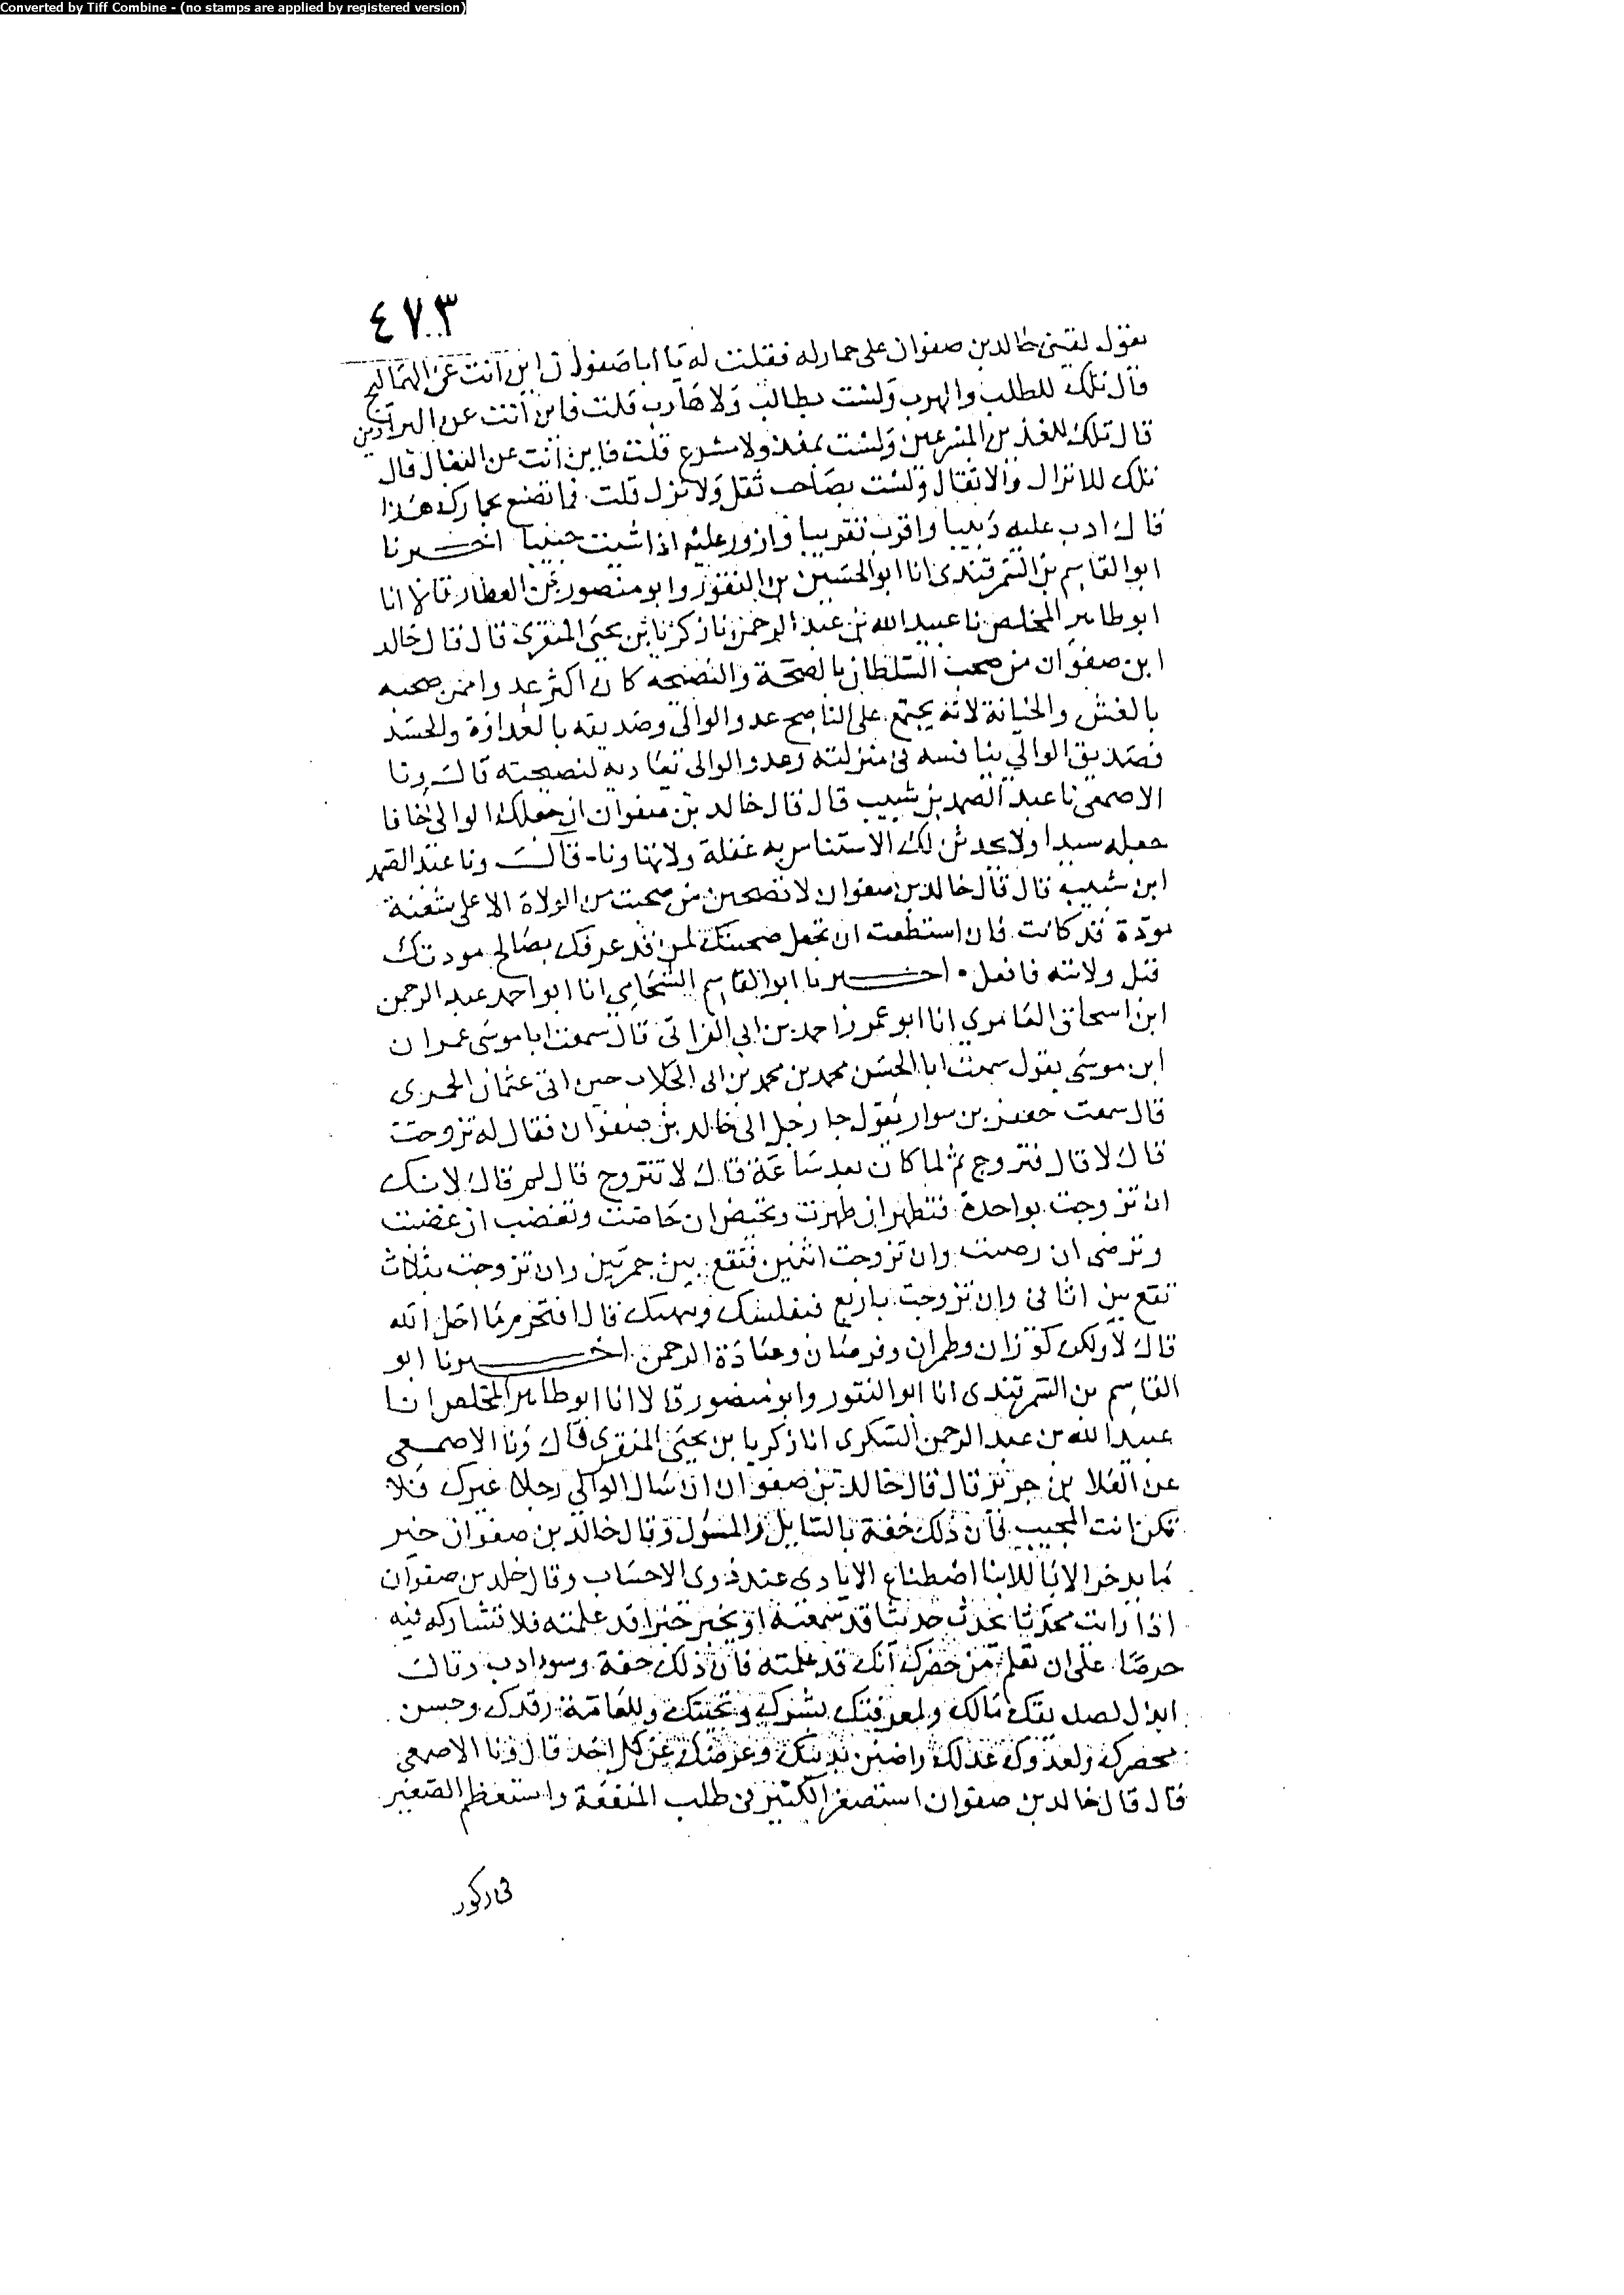 Converted by Tiff Combine - (no stamps are applied by registered version)
٤٧٣
يقول لقيني خالد بن صفوان على حمار له فقلت له يا ابا صفوان اين انت عن الهماليج
قال تلك للطلب والهرب ولست بطالب ولا هارب قلت فاين انت عن البراذين
قال تلك للمغذين المسرعين ولست بمغذ ولا مسرع قلت فاين انت عن البغال قال
تلك للانزال والاثقال ولست بصاحب ثقل ولا نزل قلت فما تصنع بحمارك هذا
قال ادب عليه دبيبا واقرب تقريبا وازور عليه اذا شيت حبيبا اخبرنا
ابو القاسم بن السمرقندى انا ابو الحسين بن النقور وابو منصور بن العطار قالا انا
ابو طاهر المخلص نا عبيد الله بن عبد الرحمن نا زكريا بن يحيى المنقري قال قال خالد
ابن صفوان من صحب السلطان بالصحة والنصيحه كان اكثر عدوا ممن صحبه
بالغش والخيانة لانه يجتمع على الناصح عدو الوالي وصديقه بالعداوة والحسد
فصديق الوالي ينافسه في منزلته وعدو الوالى يعاديه لنصيحته قال ونا
الاصمعي نا عبد الصمد بن شبيب قال قال خالد بن صفوان ان جعلك الوالي اخا فا
جعله سيدا ولا يحدثن لك الاستئناس به غفلة ولا تهاونا قال ونا عبد الصمد
ابن شبيب قال قال خالد بن صفوان لا تصحبن من صحبت من الولاة الا على شعبة
مودة قد كانت فان استطعت ان تجعل صحبتك لمن قد عرفك بصالح مودتك
قبل ولايته فافعل اخبرنا ابو القاسم الشحامي انا ابو احمد عبد الرحمن
ابن اسحاق العامري انا ابو عمرو احمد بن ابي الفراتي قال سمعت ابا موسى عمران
ابن موسى يقول سمعت ابا الحسن محمد بن محمد بن ابى عثمان الحيرى
قال سمعت جعفر بن سوار يقول جا رجل الى خالد بن صفوان فقال له تزوجت
قال لا قال فتزوج ثم لما كان بعد ساعة قال لا تتزوج قال لم قال لانك
ان تزوجت بواحدة فتطهر ان طهرت وتحيض ان حاضت وتغضب ان غضبت
وترضى ان رضيت وان تزوجت اثنين فتقع بين جمرتين وان تزوجت بثلاث
تقع بين اثافى وان تزوجت باربع فيفلسنك قال افتحرم ما احل الله
قال لا ولكن كوزان وطمران وقرصان وعبادة الرحمن اخبرنا ابو
القاسم بن السمرقندى انا ابو النقور وابو منصور قالا انا ابو طاهر المخلص انا
عبيد الله بن عبد الرحمن السكرى انا زكريا بن يحيى المنقرى قال ونا الاصمعي
عن العلا بن جرير قال قال خالد بن صفوان ان سال الوالي رجلا غيرك فلا
تكن انت المجيب فان ذلك خفة بالسايل والمسول وقال خالد بن صفوان خير
ما يدخر الابا للابنا اصطناع الايادي عند ذوى الاحساب وقال خلد بن صفوان
اذا رايت محدثا يحدث حديثا قد سمعته او يخبر خبرا قد علمته فلا تشاركه فيه
حرصا على ان تعلم من حضرك انك قد علمته فان ذلك خفة وسو ادب وقال
ابذل لصديقك مالك ولمعرفتك بشرك وتحيتك وللعامة رفدك وحسن
محضرك ولعدوك عدلك واضنن بدينك وعرضك عن كل احد قال ونا الاصمعي
قال قال خالد بن صفوان استصغر الكثير في طلب المنفعة واستعظم الصغير
في ركوب